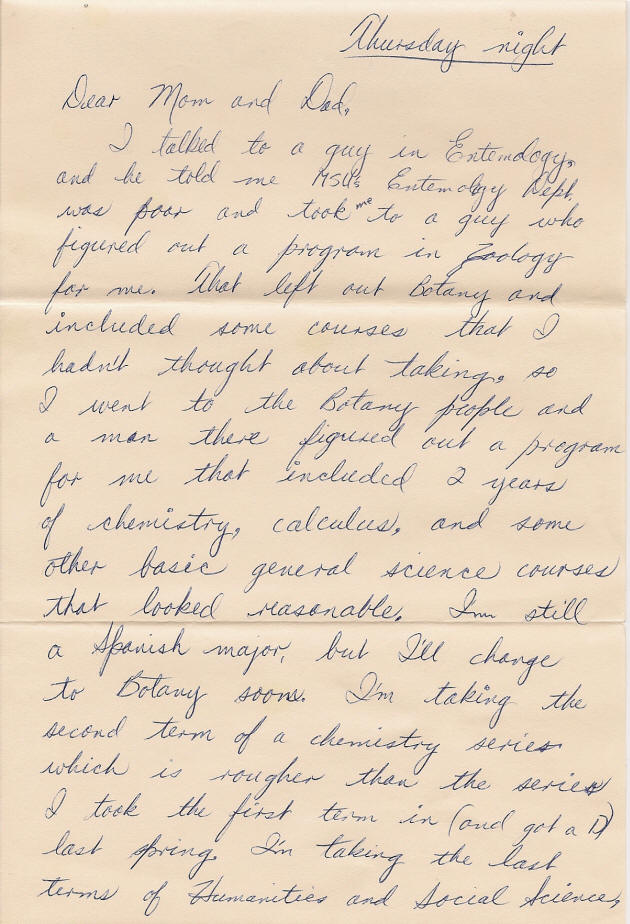 Thursday night
Dear Mom and Dad,
I talked to a guy in Entemology,
and he told me MSU's Entemology Dept.
was poor and took me to a guy who
figured out a program in Zoology
for me. That left out Botany and
included some courses that I
hadn't thought about taking, so
I went to the Botany people and
a man there figured out a program
for me that included 2 years
of chemistry, calculus, and some
other basic general science courses
that looked reasonable. I'm still
a Spanish major, but I'll change
to Botany soon. I'm taking the
second term of a chemistry series
which is rougher than the series
I took the first term in (and got a D)
last spring. I'm taking the last
terms of Humanities and Social Science,